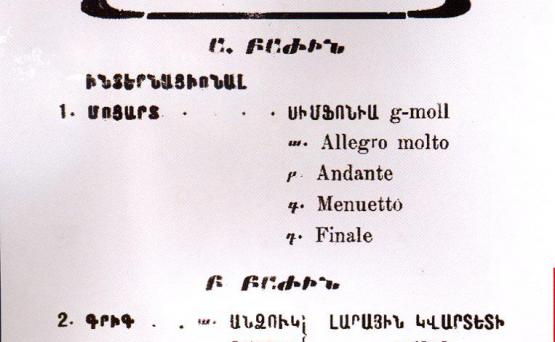 Ա. ԲԱԺԻՆ
ԻՆՏԵՐՆԱՑԻՈՆԱԼ
1. ՄՈՑԱՐՏ . . . . ՍԻՄՖՈՆԻԱ g-moll
ա. Allegro molto
բ. Andante
գ. Menuetto
դ. Finale
Բ ԲԱԺԻՆ
2. ԳՐԻԳ . . ա. ԱՆՁՈՒԿ} ԼԱՐԱՅԻՆ ԿՎԱՐՏԵՏԻ